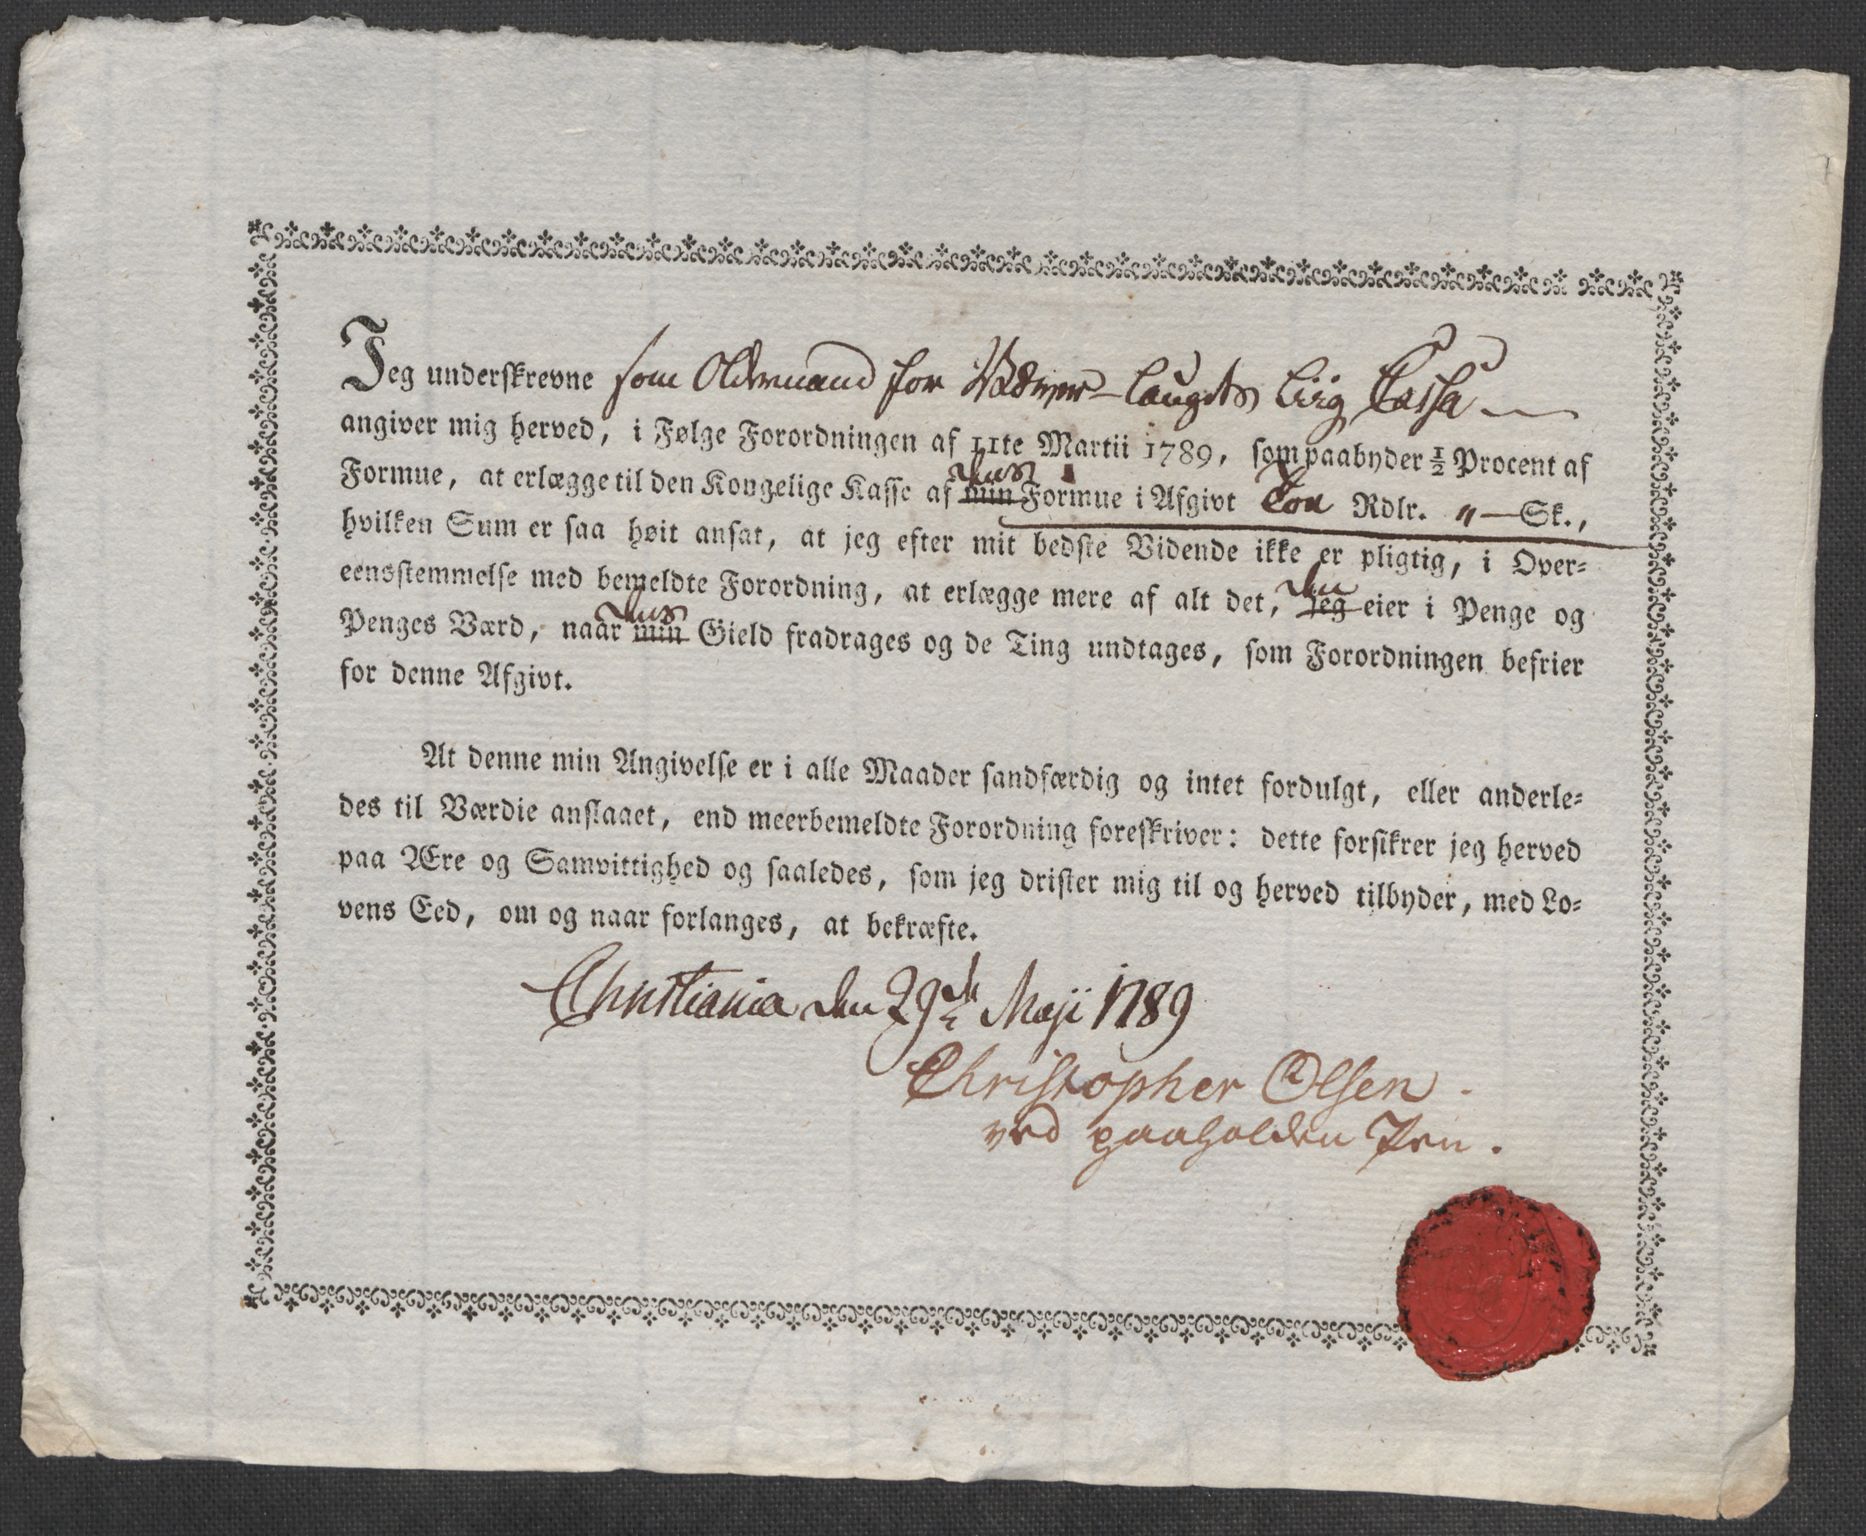 Jeg underskrevne som Oldermand for Væver-Laugets Liig Cassa
angiver mig herved, i Følge Forordningen af 11te Martii 1789, som paabyder ½ Procent af
Formue, at erlægge til den Kongelige Kasse af min dens Formue i Afgivt Toe Rdlr. " — Sk.,
hvilken Sum er saa høit ansat, at jeg efter mit bedste Vidende ikke er pligtig, i Over-
eensstemmelse med bemeldte Forordning, at erlægge mere af alt det, jeg den eier i Penge og
Penges Værd, naar min dens Gield fradrages og de Ting undtages, som Forordningen befrier
for denne Afgivt.
At denne min Angivelse er i alle Maader sandfærdig og intet fordulgt, eller anderle-
des til Værdie anslaaet, end meerbemeldte Forordning foreskriver: dette forsikrer jeg herved
paa Ære og Samvittighed og saaledes, som jeg drister mig til og herved tilbyder, med Lo-
vens Eed, om og naar forlanges, at bekræfte.
Christiania den 29de Maji 1789
Christopher Olsen.
ved paaholden Pen.